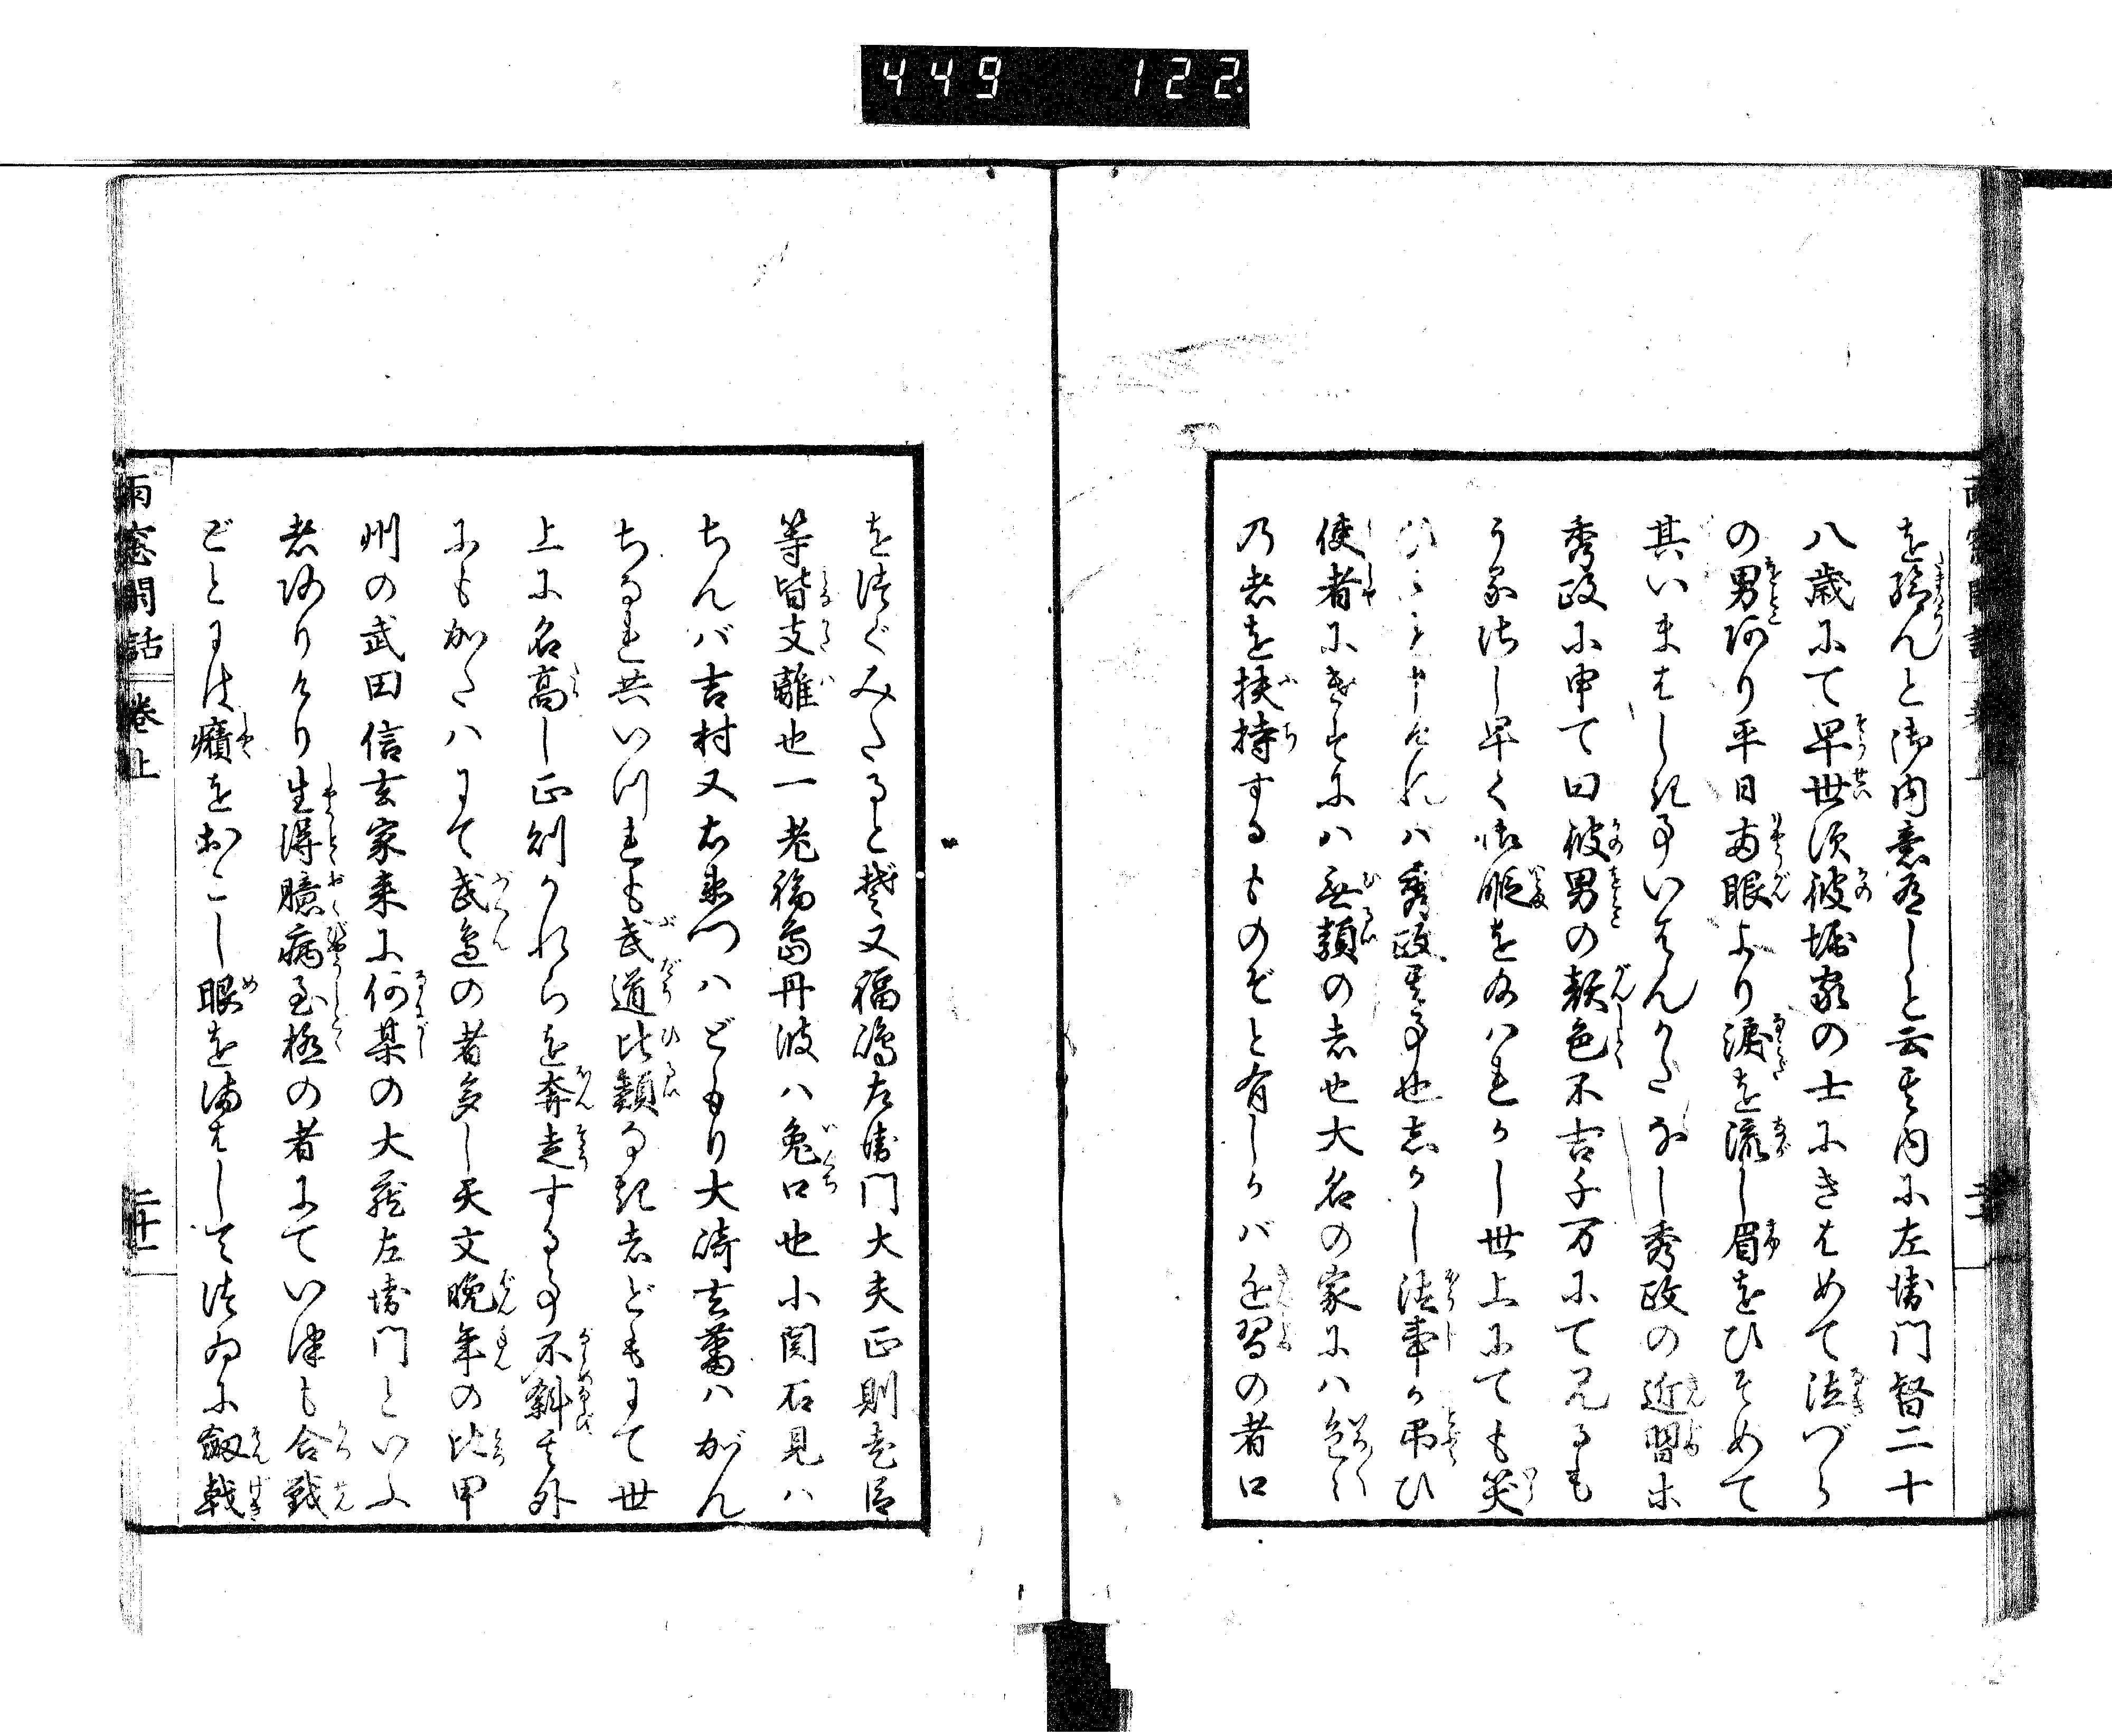 449 122
を給んと御内意有しと云其内に左衛門督二十
八歳にて早世須彼堀家の士にきはめて泣づら
の男あり平日両眼より涙を流し眉をひそめて
其いまはしき事いはんかたなし秀政の近習ホ
秀政に申て曰彼男の顔色不吉千万にて見るも
うるさし早く御暇を給はれかし世上にても笑
ひ申けれハ秀政其事也しかし法事か弔ひ
使者にきはめてハ無類の者也大名の家にハ色々
の者を扶持するものぞと有しかバ近習の者口
をつぐみたると聞又福嶋左衛門大夫正則老臣
等皆支離也一老福島丹波ハ兔口也小関石見ハ
ちんバ吉村又右衛門ハどもり大崎玄蕃ハがん
ちなれ共いづれも武道比類なき者どもにて世
上に名高し正則かれらを奔走する事不斜其外
にもかたハにて武邊の者多し天文晩年の比甲
州の武田信玄家来に何某の大蔵左衛門といふ
者ありけり生得臆病至極の者にていつも合戦
ごとに癪をおこし眼をまはして終に劔戟
雨窓閑話 巻上 二十一